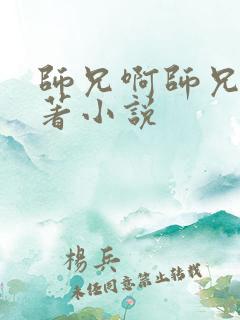 師兄啊師兄
著小説
楊兵
未經同意禁止轉載